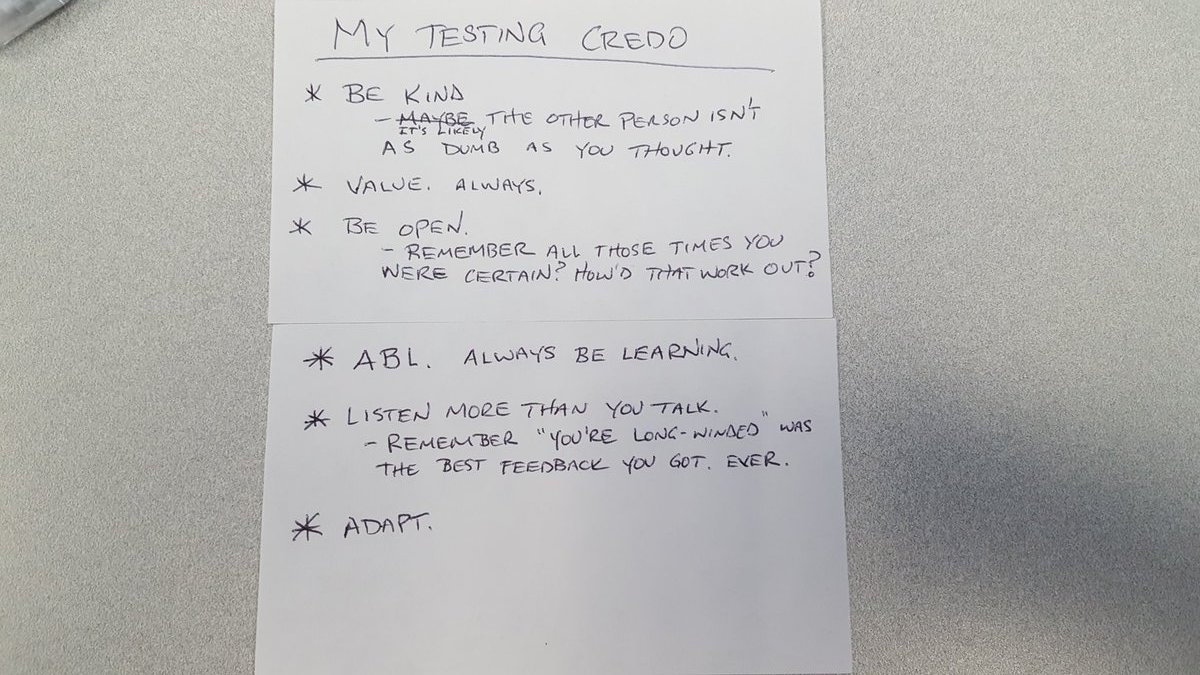 MY TESTING CREDO
* BE KIND
- MAYBE THE OTHER PERSON ISN'T
IT'S LIKELY
AS DUMB AS YOU THOUGHT.
* VALUE. ALWAYS.
* BE OPEN.
- REMEMBER ALL THOSE TIMES YOU
WERE CERTAIN? HOW'D THAT WORK OUT?
* ABL. ALWAYS BE LEARNING.
* LISTEN MORE THAN YOU TALK.
- REMEMBER "YOU'RE LONG-WINDED" WAS
THE BEST FEEDBACK YOU GOT. EVER.
* ADAPT.